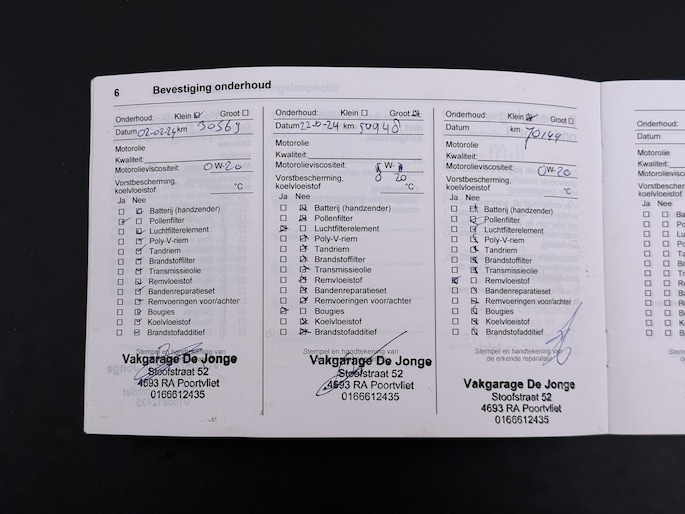 6 Bevestiging onderhoud
Onderhoud: Klein Groot
Datum 02-02-24 km 30569
Motorolie
Kwaliteit:
Motorolieviscositeit: 0 W- 20
Vorstbescherming,
koelvloeistof °C
Ja Nee
Batterij (handzender)
Pollenfilter
Luchtfilterelement
Poly-V-riem
Tandriem
Brandstoffilter
Transmissieolie
Remvloeistof
Bandenreparatieset
Remvoeringen voor/achter
Bougies
Koelvloeistof
Brandstofadditief
Stempel en handtekening van
Vakgarage De Jonge
Stoofstraat 52
4693 RA Poortvliet
0166612435
Onderhoud: Klein Groot
Datum km 50948
Motorolie
Kwaliteit:
Motorolieviscositeit: W-
0 20
Vorstbescherming,
koelvloeistof °C
Ja Nee
Batterij (handzender)
Pollenfilter
Luchtfilterelement
Poly-V-riem
Tandriem
Brandstoffilter
Transmissieolie
Remvloeistof
Bandenreparatieset
Remvoeringen voor/achter
Bougies
Koelvloeistof
Brandstofadditief
Stempel en handtekening van
Vakgarage De Jonge
Stoofstraat 52
4693 RA Poortvliet
0166612435
Onderhoud: Klein Groot
Datum km 70149
Motorolie
Kwaliteit:
Motorolieviscositeit: 0 W- 20
Vorstbescherming,
koelvloeistof °C
Ja Nee
Batterij (handzender)
Pollenfilter
Luchtfilterelement
Poly-V-riem
Tandriem
Brandstoffilter
Transmissieolie
Remvloeistof
Bandenreparatieset
Remvoeringen voor/achter
Bougies
Koelvloeistof
Brandstofadditief
Stempel en handtekening van
de erkende reparateur
Vakgarage De Jonge
Stoofstraat 52
4693 RA Poortvliet
0166612435
Onderhoud:
Datum
Motorolie
Kwaliteit:
Motorolievisco
Vorstbescherming,
koelvloeistof
Ja Nee